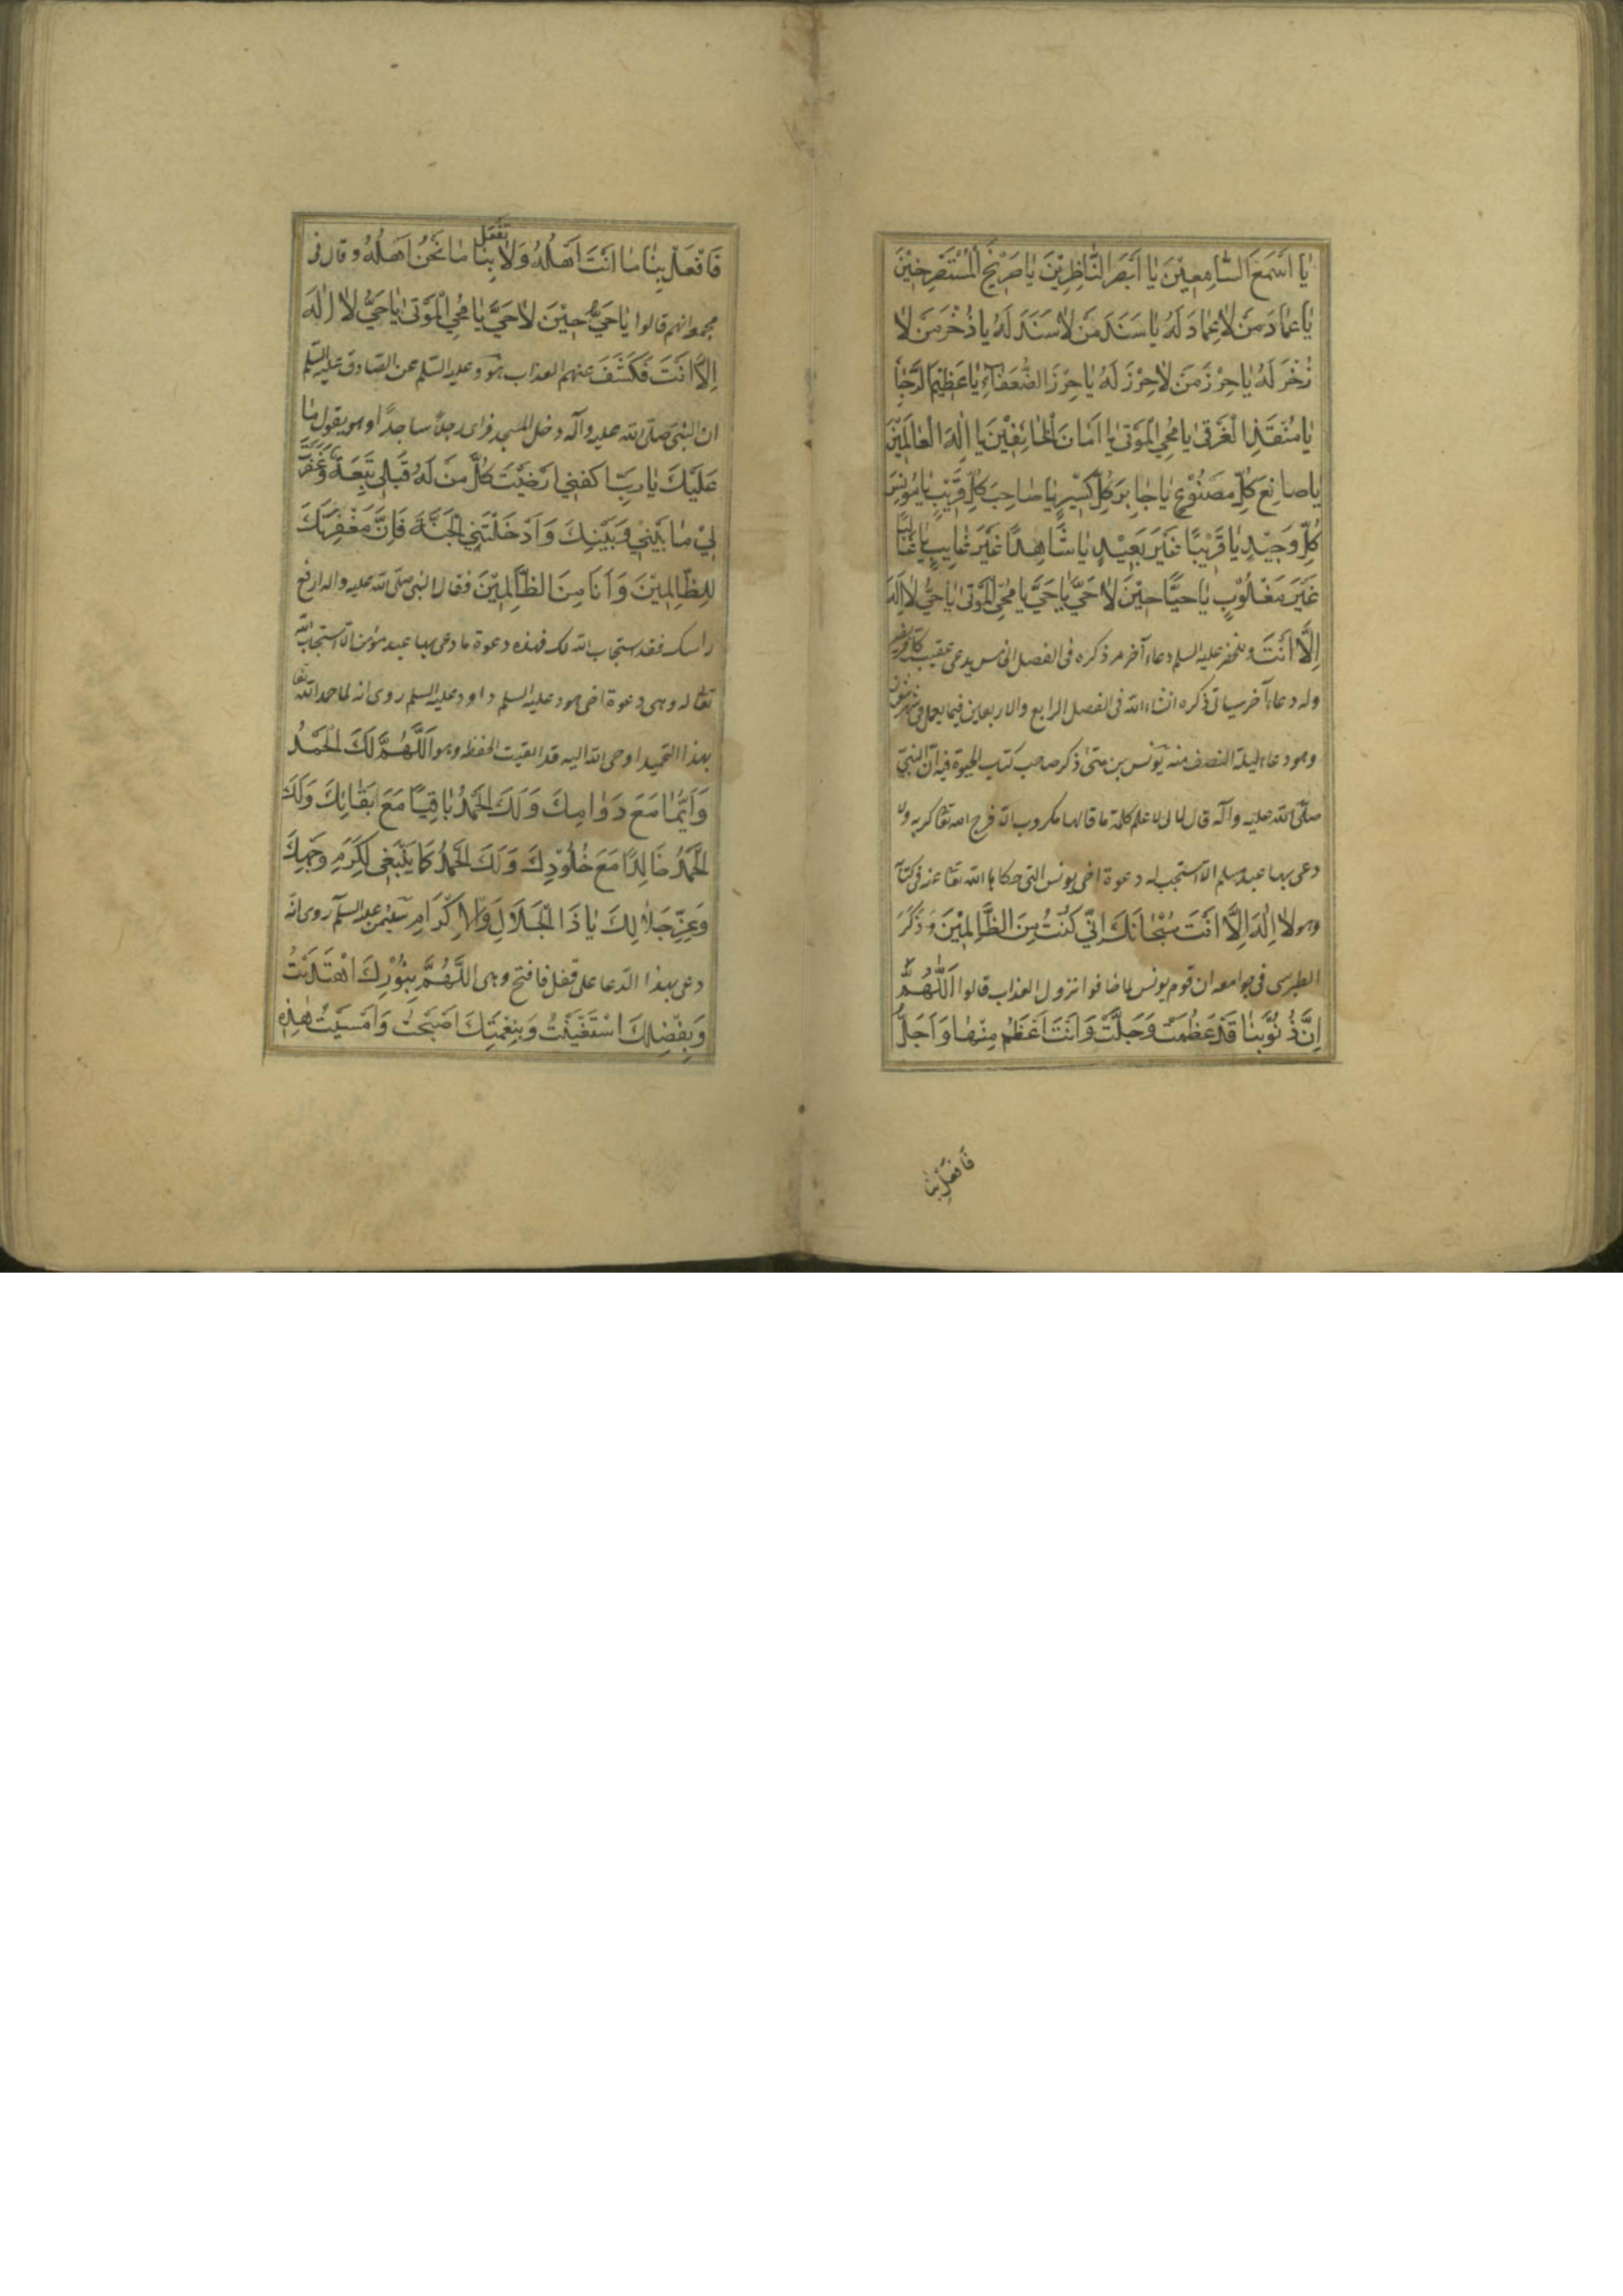 يَا اَسْمَعَ السَّامِعِيْنَ يَا اَبْصَرَ النَّاظِرِيْنَ يَا صَرِيْخَ الْمُسْتَصْرِخِيْنَ
يَا عِمَادَ مَنْ لَا عِمَادَ لَهُ يَا سَنَدَ مَنْ لَا سَنَدَ لَهُ يَا ذُخْرَ مَنْ لَا
ذُخْرَ لَهُ يَا حِرْزَ مَنْ لَا حِرْزَ لَهُ يَا حِرْزَ الضُّعَفَآءِ يَا عَظِيْمَ الرَّجَآ
يَا مُنْقِذَ الْغَرْقٰى يَا مُحْيِيَ الْمَوْتٰى يَا اَمَانَ الْخَائِفِيْنَ يَا اِلٰهَ الْعَالَمِيْنَ
يَا صَانِعَ كُلِّ مَصْنُوْعٍ يَا جَابِرَ كُلِّ كَسِيْرٍ يَا صَاحِبَ كُلِّ قَرِيْبٍ يَا مُوْنِسَ
كُلِّ وَحِيْدٍ يَا قَرِيْبًا غَيْرَ بَعِيْدٍ يَا شَاهِدًا غَيْرَ غَايِبٍ يَا غَالِبًا
غَيْرَ مَغْلُوْبٍ يَا حَيًّا حِيْنَ لَا حَيَّ يَا حَيُّ يَا مُحْيِيَ الْمَوْتٰى يَا حَيُّ لَا اِلٰهَ
اِلَّا اَنْتَ وللخضر عليه السلم دعاء آخر مر ذكره فى الفصل الخامس يدعى عقيب كل فريضة
وله دعاء آخر سياتى ذكره انشاء الله فى الفصل الرابع والاربعين فيما يعمل فى شهر شعبان
وهو دعاء ليلة النصف منه يونس بن متى ذكر صاحب كتاب الحيوة فيه ان النبى
صلى الله عليه وآله قال انى لاعلم كلمة ما قالها مكروب الا فرج الله تعا كربه ولا
دعى بها عبد مسلم الا استجيب له دعوة اخى يونس التى حكاها الله تعا عنه فى كتابه
وهو لَا اِلٰهَ اِلَّا اَنْتَ سُبْحَانَكَ اِنِّي كُنْتُ مِنَ الظَّالِمِيْنَ وَذَكَرَ
الطبرسى فى جوامعه ان قوم يونس لما خافوا نزول العذاب قالوا اَللّٰهُمَّ
اِنَّ ذُنُوْبَنَا قَدْ عَظُمَتْ وَجَلَّتْ وَاَنْتَ اَعْظَمُ مِنْهَا وَاَجَلُّ
فَافْعَلْ بِنَا
فَافْعَلْ بِنَا مَا اَنْتَ اَهْلُهُ وَلَا تَفْعَلْ بِنَا مَا نَحْنُ اَهْلُهُ وقال فى
مجمعه انهم قالوا يَا حَيُّ حِيْنَ لَا حَيَّ يَا مُحْيِيَ الْمَوْتٰى يَا حَيُّ لَا اِلٰهَ
اِلَّا اَنْتَ فَكَشَفَ عنهم العذاب هود عليه السلم عن الصادق عليه السلم
ان النبى صلى الله عليه وآله دخل المسجد فراى رجلا ساجدا وهو يقول مَا
عَلَيْكَ يَا رَبِّ لَوْ اَرْضَيْتَ كُلَّ مَنْ لَهُ قِبَلِى تَبِعَةٌ وَغَفَرْتَ
لِيْ مَا بَيْنِيْ وَبَيْنَكَ وَاَدْخَلْتَنِي الْجَنَّةَ فَاِنَّ مَغْفِرَتَكَ
لِلظَّالِمِيْنَ وَاَنَا مِنَ الظَّالِمِيْنَ فقال النبى صلى الله عليه واله ارفع
راسك فقد استجاب الله لك فهذه دعوة ما دعى بها عبد مؤمن الا استجاب الله
تعا له وهى دعوة اخى هود عليه السلم داود عليه السلم روى انه لما حمد الله تعا
بهذا التحميد اوحى الله اليه قد اتعبت الحفظة وهو اَللّٰهُمَّ لَكَ الْحَمْدُ
دَآئِمًا مَعَ دَوَامِكَ وَلَكَ الْحَمْدُ بَاقِيًا مَعَ بَقَائِكَ وَلَكَ
الْحَمْدُ خَالِدًا مَعَ خُلُوْدِكَ وَلَكَ الْحَمْدُ كَمَا يَنْبَغِى لِكَرَمِ وَجْهِكَ
وَعِزِّ جَلَالِكَ يَا ذَا الْجَلَالِ وَالْاِكْرَامِ سليمن عليه السلم روى انه
دعى بهذا الدعا على قفل فانفتح وهى اللّٰهُمَّ بِنُوْرِكَ اهْتَدَيْتُ
وَبِفَضْلِكَ اسْتَغْنَيْتُ وَبِنِعْمَتِكَ اَصْبَحْتُ وَاَمْسَيْتُ هٰذِهِ